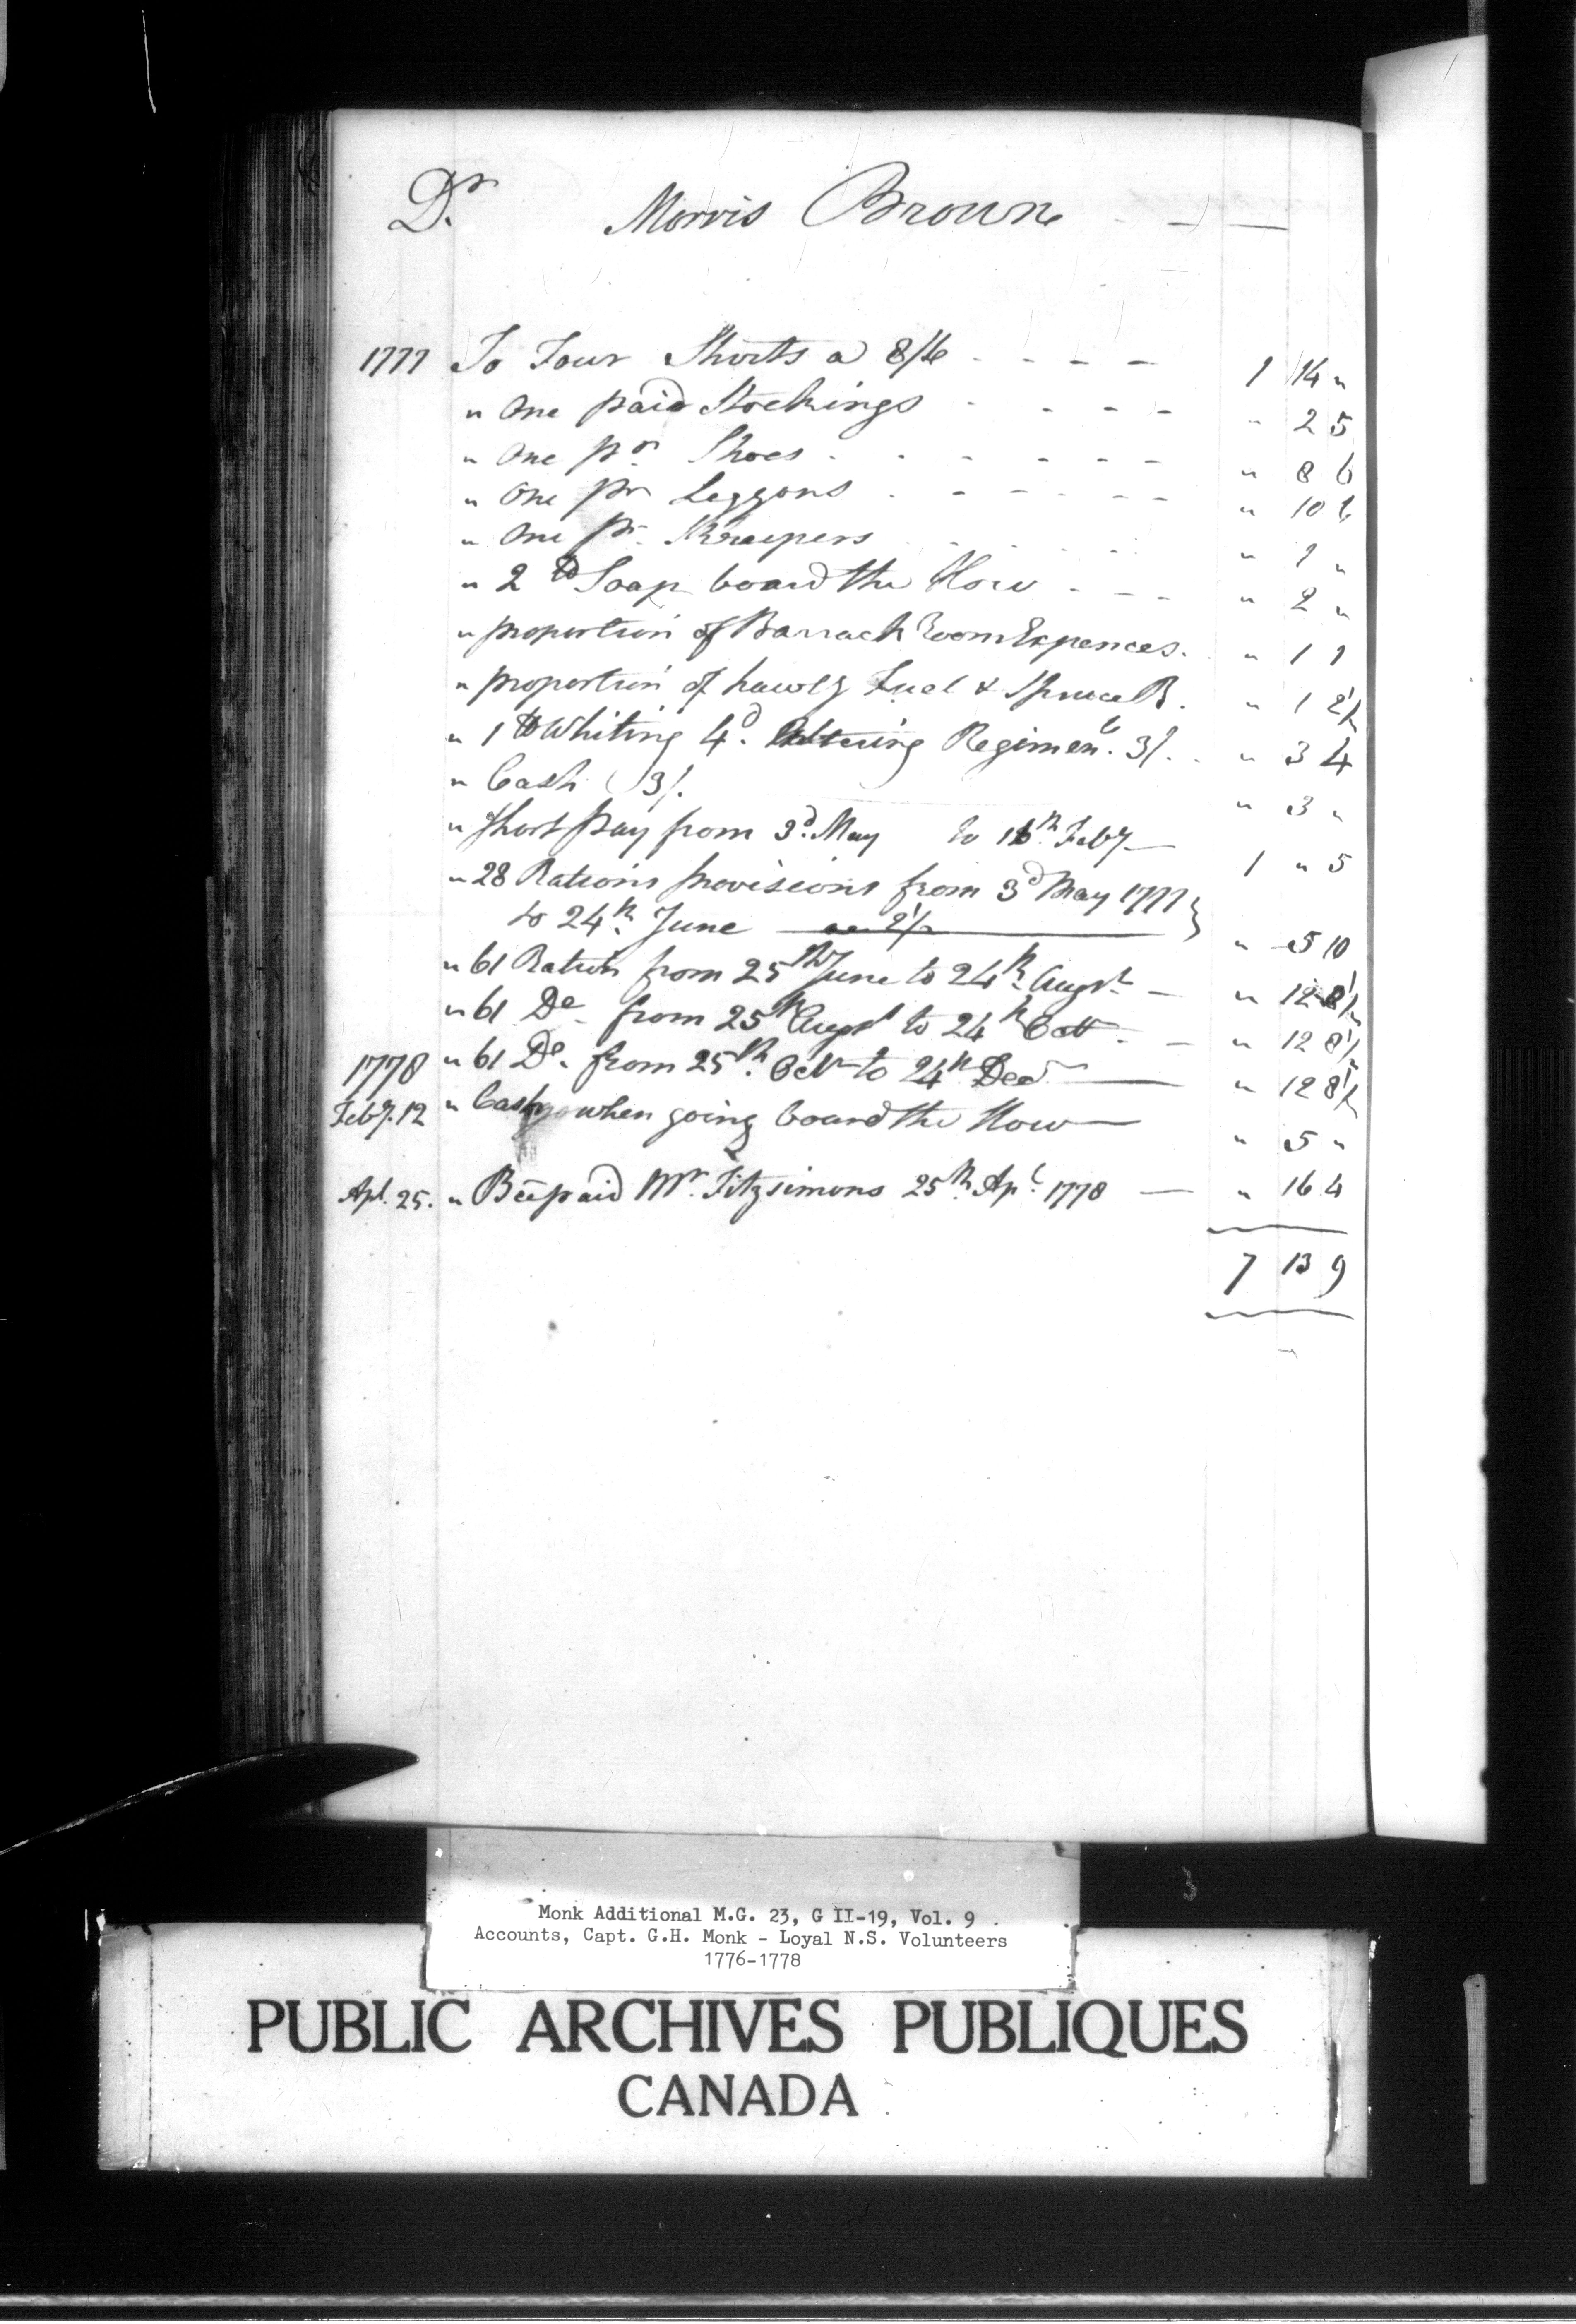 Dr. Morris Brown
1777 To Four Shirts a 8/6 - - - - 1 14 "
" One paid Stockings - - - - " 2 5
" One pr. Shoes - - - - - - " 8 6
" One pr Leggons - - - - - " 10 6
" One pr. Kneepers - - - " 1 "
" 2 lb Soap board the How - - - " 2 "
" proportion of Barrack Room Expences. " 1 1
" proportion of Fuel & Spruce B. " 1 2½
" 1 lb Whiting 4d. Altering Regiment. 3/. " 3 4
" Cash 3/. " 3 "
" Short pay from 3d. May to 16th Feby — 1 " 5
" 28 Rations provisions from 3d May 1777 }
to 24th June " 5 10
" 61 Ration from 25th June to 24th Augst — " 12 8½
" 61 Do from 25th Augst to 24th Octr — " 12 8½
1778 " 61 Do. from 25th. Octr to 24th Decr — " 12 8½
Feby. 12 " Cash when going board the How — " 5 "
Apl. 25. " Bee paid Mr. Fitzsimons 25th Apl 1778 — " 16 4
7 13 9
Monk Additional M.G. 23, G II-19, Vol. 9
Accounts, Capt. G.H. Monk - Loyal N.S. Volunteers
1776-1778
PUBLIC ARCHIVES PUBLIQUES
CANADA